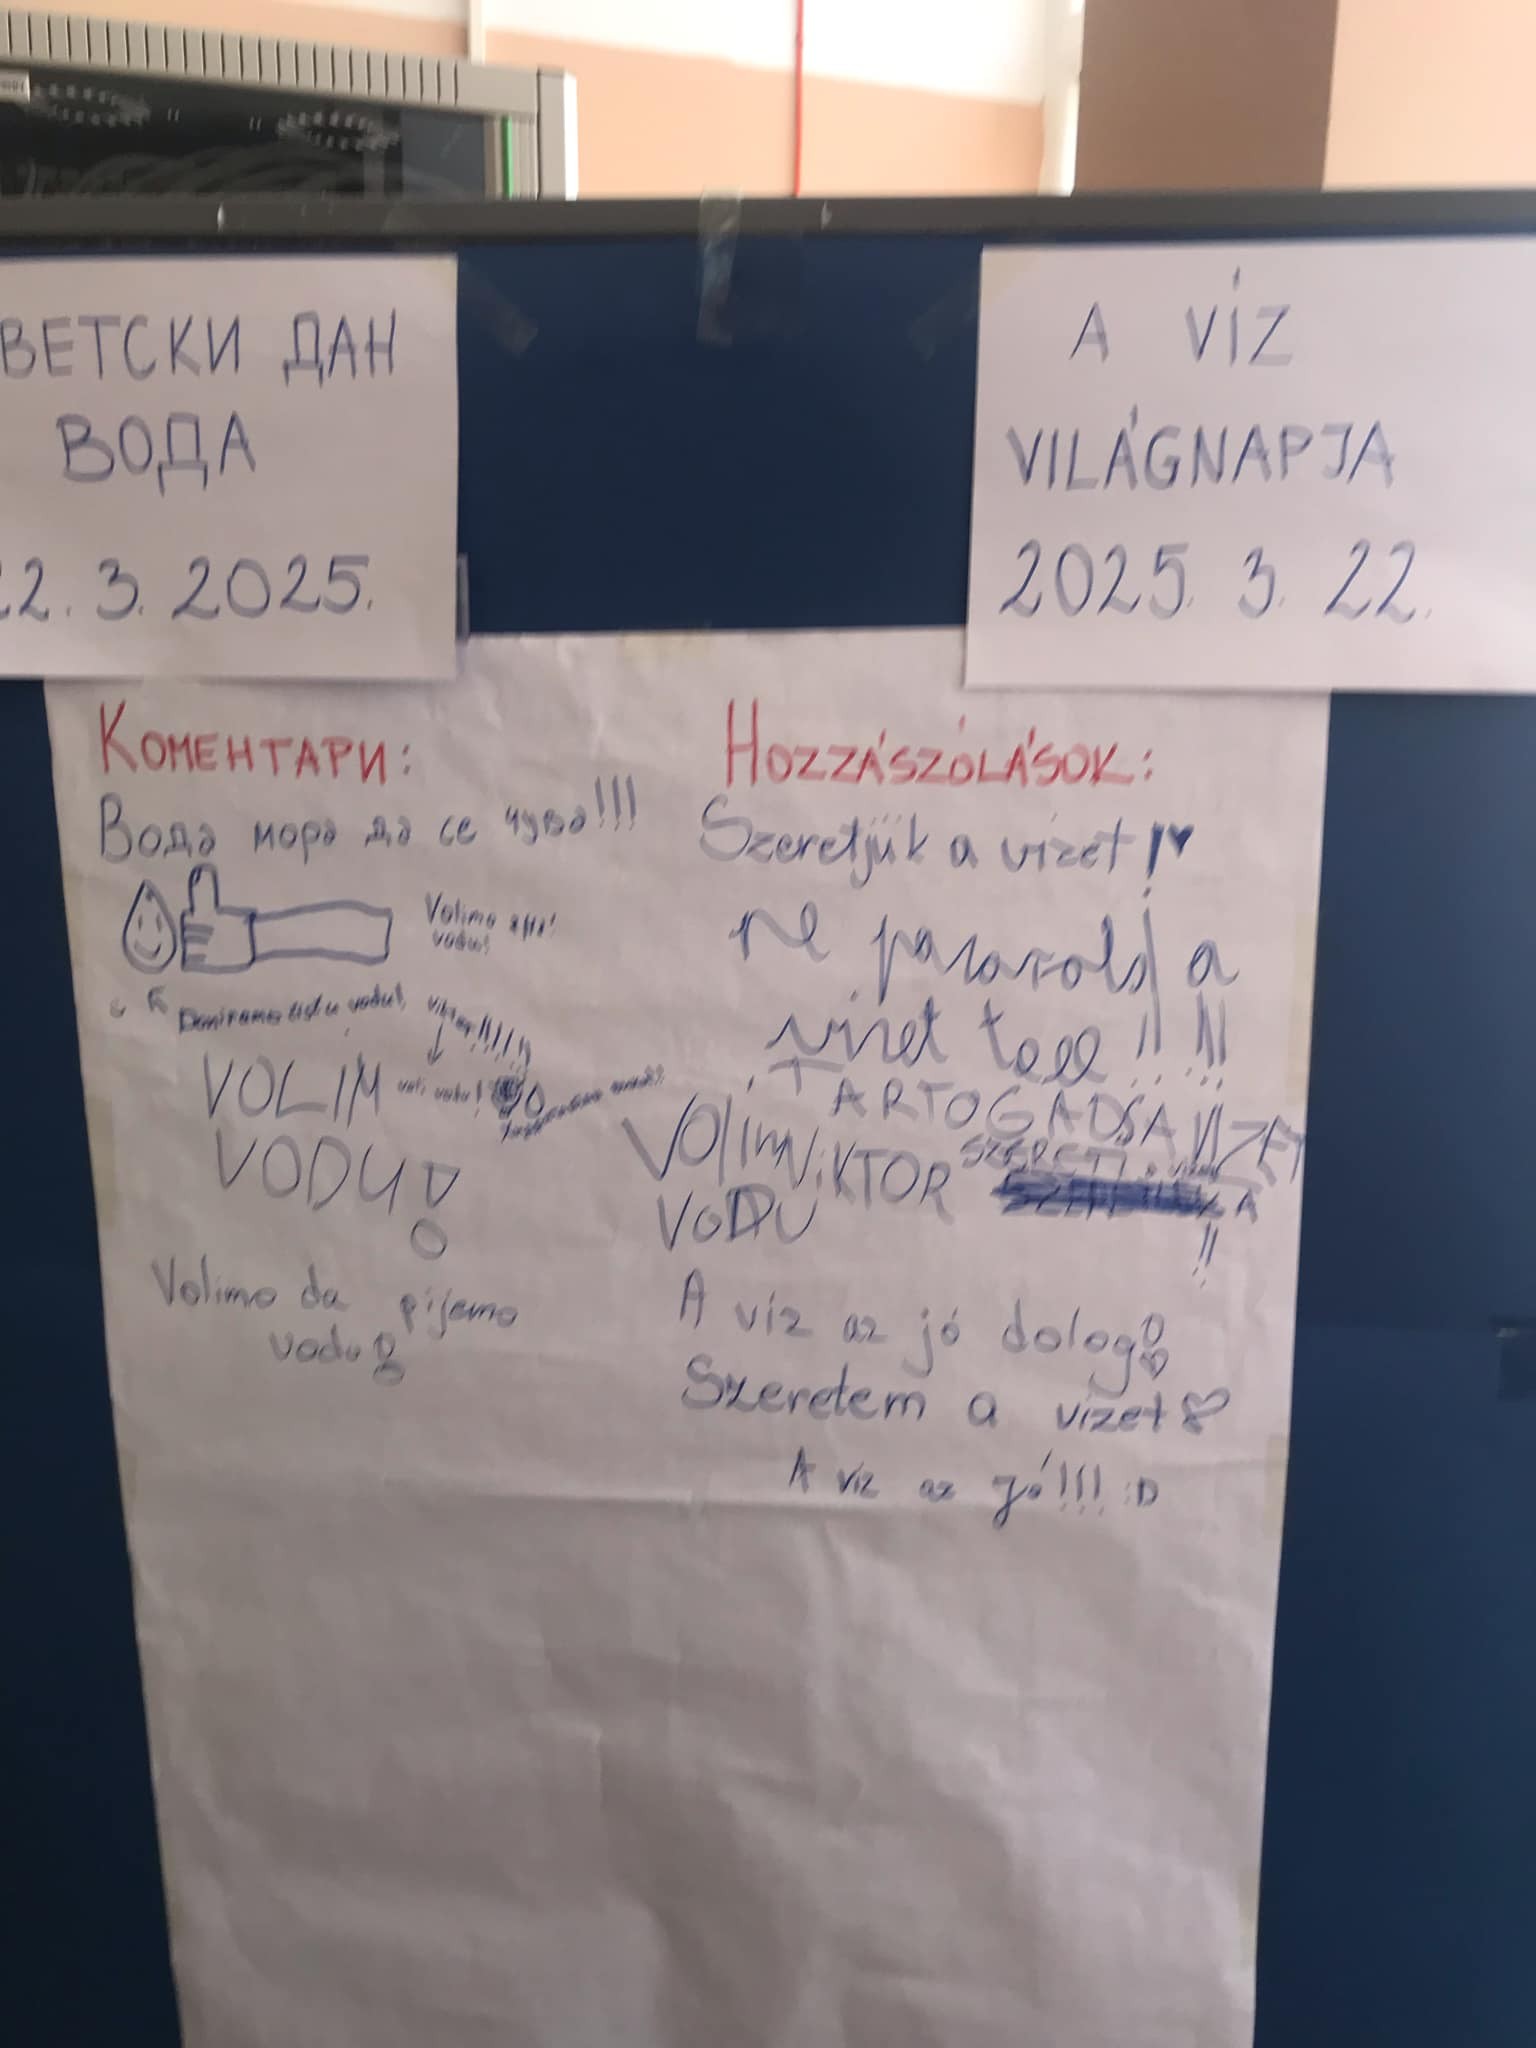 ВЕТСКИ ДАН
ВОДА
22. 3. 2025.
A VÍZ
VILÁGNAPJA
2025. 3. 22.
КОМЕНТАРИ:
Вода мора да се чува!!!
Volimo
vodu!
vodu!
VOLIM
voli vodu!
VODU!
Volimo da pijemo
vodu!
HOZZÁSZÓLÁSOK:
Szeretjük a vizet!♥
Ne pazarold a
vizet!!!!
TARTOGADSA VIZET
VOLIM
VODU
VIKTOR SZERETI a
!!
A víz az jó dolog!
Szeretem a vizet
A víz az jó!!! :D